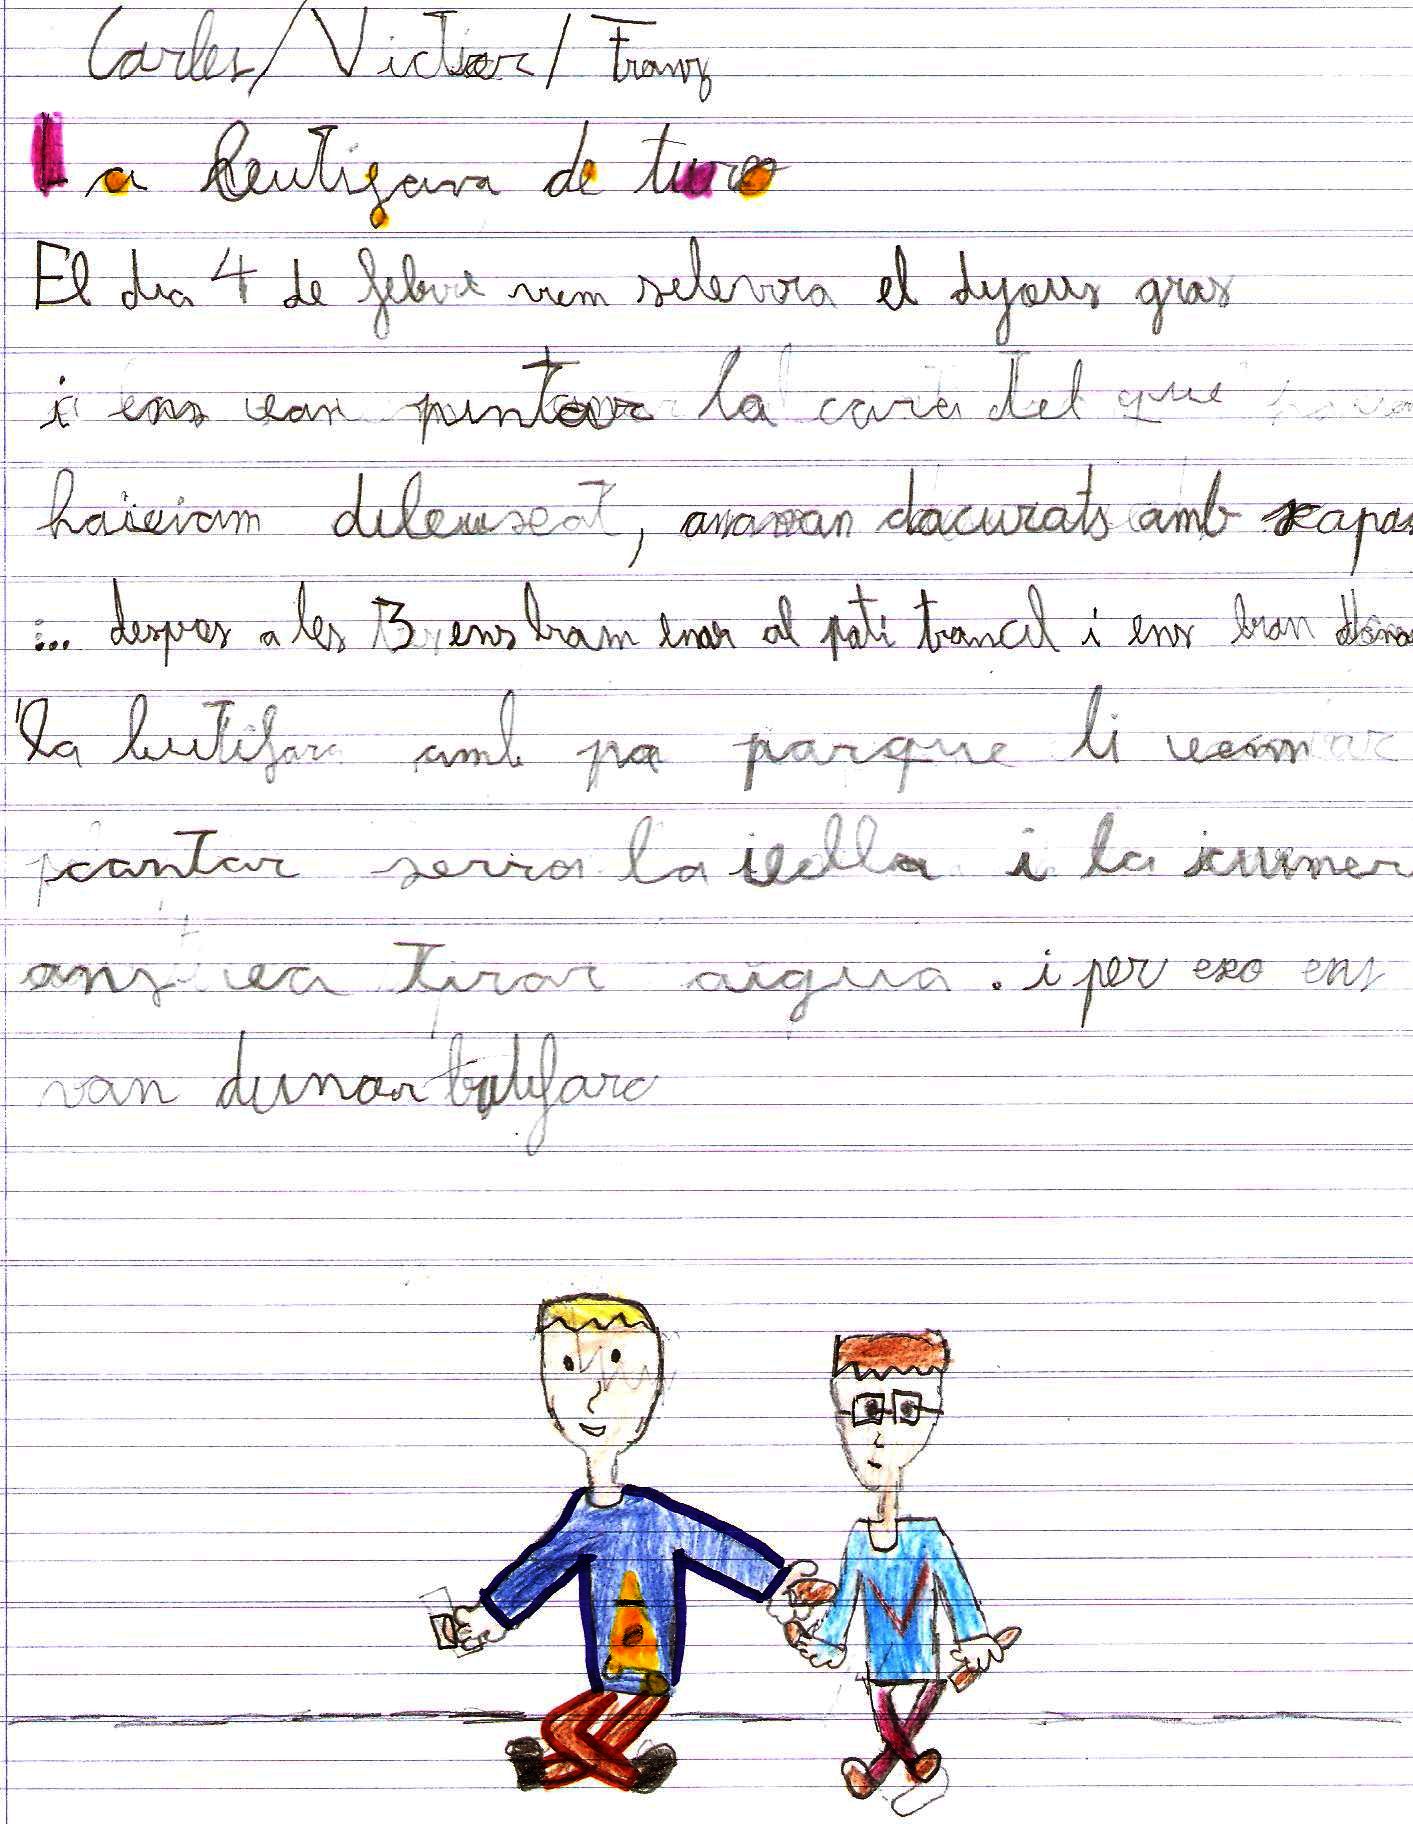 Carles/Victor/Franz
La Butifara de turo
El dia 4 de febre vem selevra el dyous gras
i ens van pintar la cara del que
haieiam dileuseat, anavan dacurats amb capas
... despres a les 3 ens bram enar al pati trancil i ens bran dona
la butifara amb pa parque li vem
cantar serra la iella i la iumener
ens va tirar aigua. i per exo ens
van dunar butifara